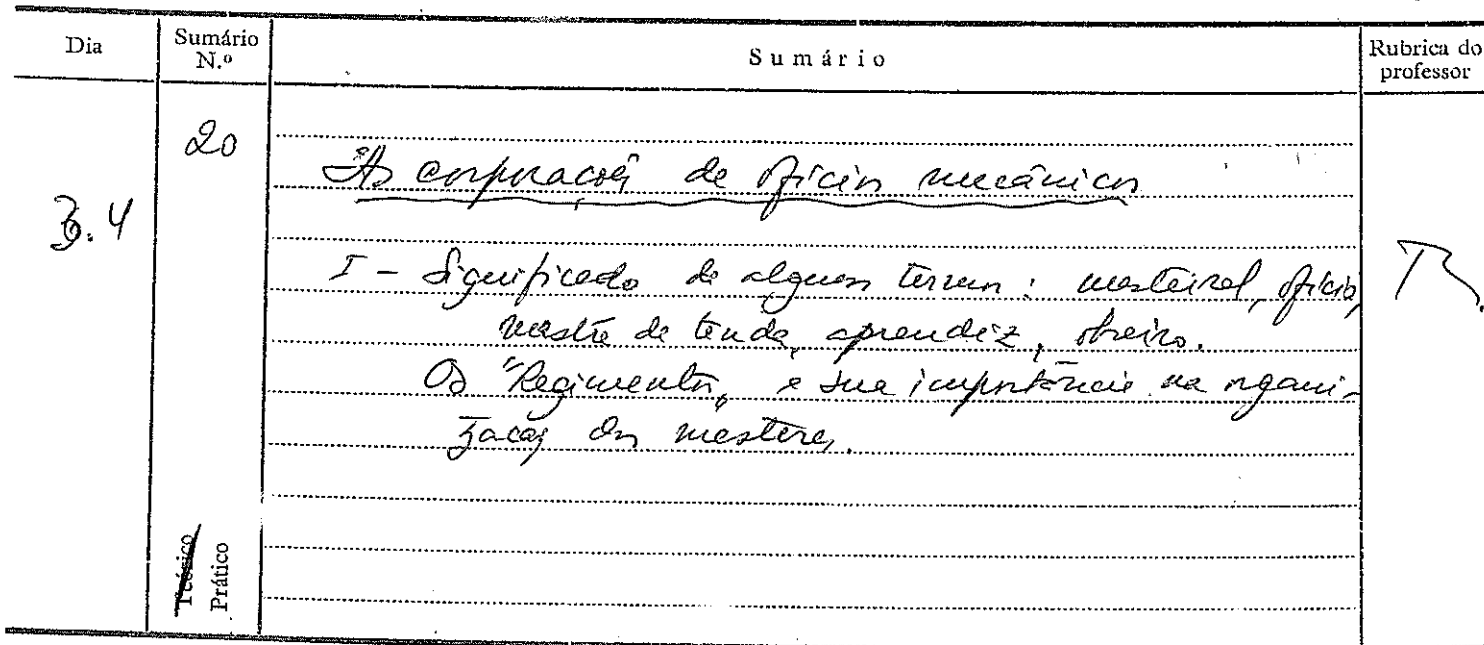 Dia
Sumário N.º
Sumário
Rubrica do professor
20
As corporações de ofícios mecânicos
3.4
I - Significado de alguns termos: mesteiral, ofício,
mestre de tenda, aprendiz, obreiro.
Os "Regimentos" e sua importância na organi-
zação dos mesteres.
Teórico
Prático